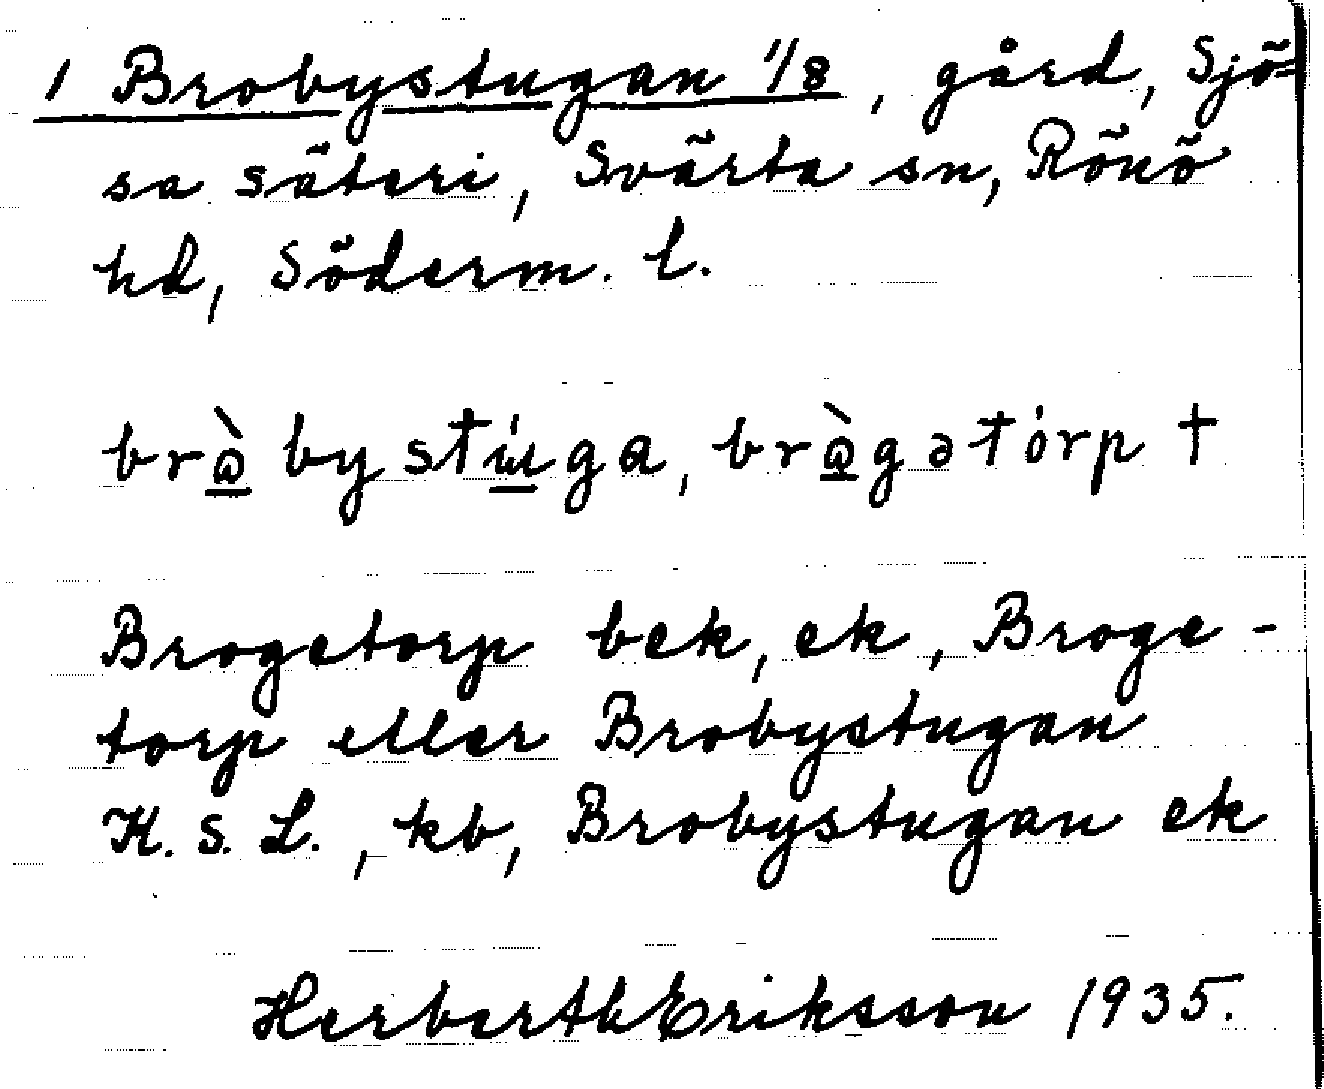 1 Brobystugan 1/8, gård, Sjö=
sa säteri, Svärta sn, Rönö
hd, Söderm. l.
brò̲bystú̲ga, brò̲gətórp †
Brogetorp bek, ek, Broge-
torp eller Brobystugan
K.S.L., kb, Brobystugan ek
Herberth Eriksson 1935.